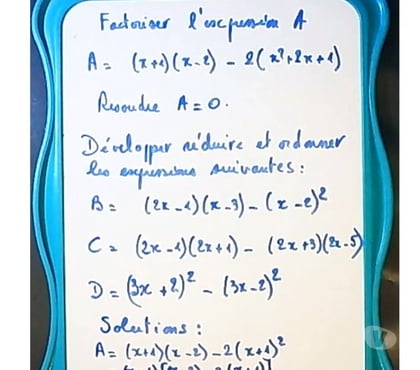 Factoriser l'expression A
A = (x+1)(x-2) - 2(x²+2x+1)
Resoudre A=0.
Développer réduire et ordonner
les expressions suivantes :
B = (2x-1)(x-3) - (x-2)²
C = (2x-1)(2x+1) - (2x+3)(2x-5)
D = (3x+2)² - (3x-2)²
Solutions :
A = (x+1)(x-2) - 2(x+1)²